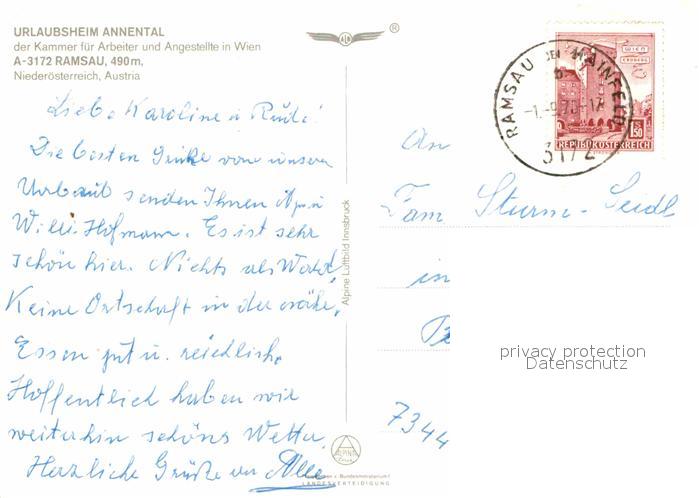 URLAUBSHEIM ANNENTAL
der Kammer für Arbeiter und Angestellte in Wien
A-3172 RAMSAU, 490 m,
Niederösterreich, Austria
ALB
®
WIEN
ERDBERG
S 1.50
REPUBLIK ÖSTERREICH
RAMSAU BEI HAINFELD
3172
Liebe Karoline u
Die besten Grüße von unseren
Urlaub senden Ihnen
Willi Hofmann. Es ist sehr
schön hier. Nichts als Wald,
Keine Ortschaft in der nähe,
Essen gut u. reichlich.
Hoffentlich haben wir
weiterhin schönes Wetter.
Herzliche Grüße von Alle
Alpine Luftbild Innsbruck
An
Fam Sturm-Seidl
in
7344
privacy protection
Datenschutz
ALPINE
LANDESVERTEIDIGUNG